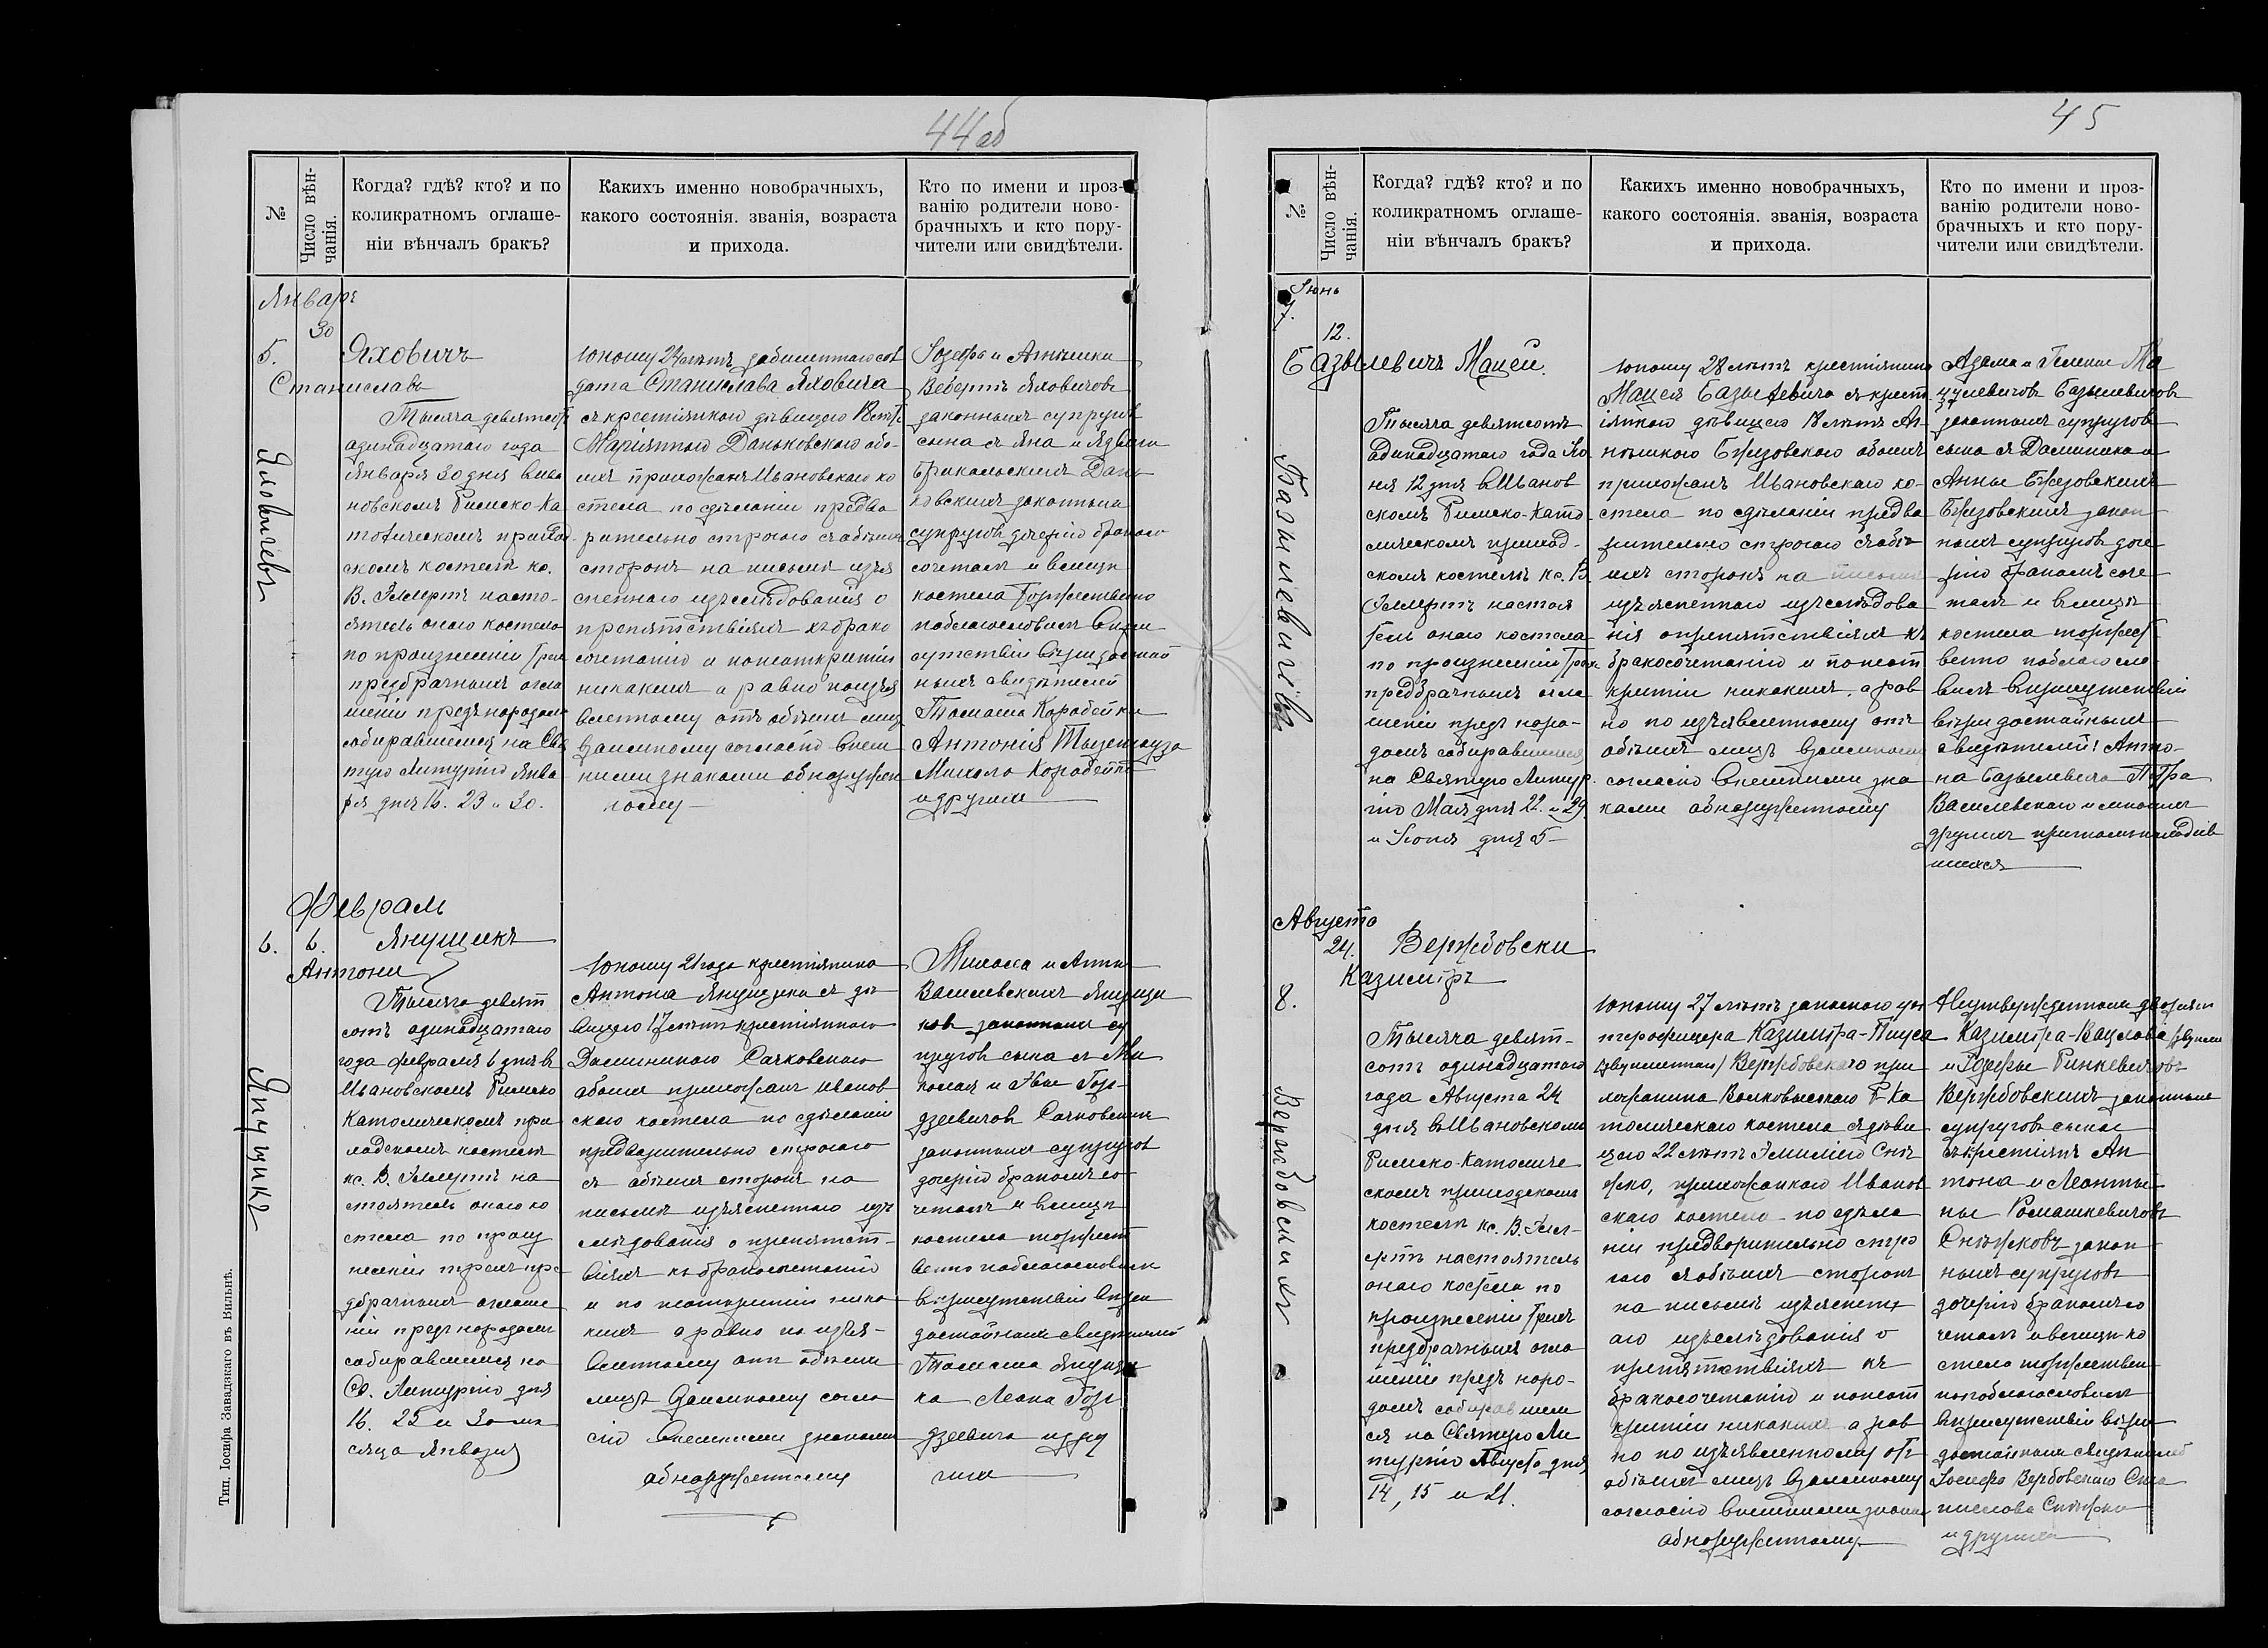 44 об
№
Число вѣн-
чанія.
Когда? гдѣ? кто? и по
коликратномъ оглаше-
ніи вѣнчалъ бракъ?
Какихъ именно новобрачныхъ,
какого состоянія. званія, возраста
и прихода.
Кто по имени и проз-
ванію родители ново-
брачныхъ и кто пору-
чители или свидѣтели.
Январь
30
5.
Яховичъ
Станиславъ
Тысяча девятсотъ
одинадцатаго года
Января 30 дня в Ива
новскомъ Римско-Ка
толическомъ приход
скомъ костелѣ кс.
В. Гелертъ насто-
ятель онаго костела
по произнесеніи трехъ
предбрачныхъ огла
шеній предъ народомъ
собиравшимся на Свя
тую Литургію Янва
ря дня 16. 23 и 30.
Юношу 24 лѣтъ
дата Станислава Яховича
съ крестіянкою дѣвицею 18 лѣтъ
Маріянною Даньковскою обо-
ихъ прихожанъ Ивановскаго ко
стела по сдѣланіи предва
рительно строгаго съ обѣихъ
сторонъ на письмѣ изъя
сненнаго изъслѣдованія о
препятствіяхъ къ брако
сочетанію и понеоткрытіи
никакихъ а равно поизъя
вленному отъ обѣихъ лицъ
взаимному согласію внеш
ними знаками обнаружен
ному
Іозефа и Антонины
Веберть Яховичовъ
законныхъ супруговъ
сына съ Яна и Ядвиги
Даньковскихъ законныхъ
супруговъ дочерію бракомъ
сочеталъ и вышеп
костела торжественно
поблагословилъ в при
сутствіи вѣридостой
ныхъ свидѣтелей
Томаша Коробейки
Антонія Тызенгауза
Михала Коробейки
и другихъ
Яховичевъ
Февраль
6.
6.
Янущикъ
Антони
Тысяча девят
сотъ одинадцатаго
года февраля 6 дня в
Ивановскомъ Римско
Католическомъ при
ходскомъ костелѣ
кс. В. Гелертъ на
стоятель онаго ко
стела по произ
несеніи трехъ пре
дбрачныхъ оглаше
ній предъ народомъ
собиравшимся на
Св. Литургію дня
16. 23 и 30 мѣ
сяца Января
Юношу 21 года крестіянина
Антона Янущика съ дѣ
вицею 17 лѣтъ крестіянкою
Доминикою Сачковскою
обоихъ прихожанъ Иванов
скаго костела по сдѣланіи
предварительно строгаго
съ обѣихъ сторонъ на
письмѣ изъясненнаго изъ
слѣдованія о препятст-
віяхъ къ бракосочетанію
и по неоткрытіи ника
кихъ а равно по изъя-
вленному отъ обѣихъ
лицъ взаимному согла
сію внешними знаками
обнаруженному
Михала и Анны
Василевскихъ Янущи
ковъ законныхъ су
пруговъ сына съ Ми
халая и Евы Гор-
дзеевичовъ Сачковскихъ
законныхъ супруговъ
дочерію бракомъ со
четалъ и вышеп
костела торжест
венно поблагословилъ
в присутствіи вѣри
достойныхъ свидѣтелей
Томаша Янущи
ка Леона Гор
дзеевича и дру
гихъ
Янущикъ
Тип. Іосифа Завадзкаго въ Вильнѣ.
45
№
Число вѣн-
чанія.
Когда? гдѣ? кто? и по
коликратномъ оглаше-
ніи вѣнчалъ бракъ?
Какихъ именно новобрачныхъ,
какого состоянія. званія, возраста
и прихода.
Кто по имени и проз-
ванію родители ново-
брачныхъ и кто пору-
чители или свидѣтели.
Іюнь
7.
12.
Базылевичъ Мацей.
Тысяча девятсотъ
одинадцатаго года Ію
ня 12 дня в Иванов
скомъ Римско-Като
лическомъ приход-
скомъ костелѣ кс. В.
Гелертъ настоя
тель онаго костела
по произнесеніи трехъ
предбрачныхъ огла
шеній предъ наро-
домъ собиравшимся
на Святую Литур
гію Мая дня 22. и 29.
и Іюня дня 5
Юношу 28 лѣтъ крестіянина
Мацея Базылевича съ крест
іянкою дѣвицею 18 лѣтъ Ан-
ною Бжезовскою обоихъ
прихожанъ Ивановскаго ко-
стела по сдѣланіи предва
рительно строгаго съ обѣ
ихъ сторонъ на письмѣ
изъясненнаго изъслѣдова
нія о препятствіяхъ къ
бракосочетанію и понеот
крытіи никакихъ, а рав
но по изъявленному отъ
обѣихъ лицъ взаимному
согласію внешними зна
ками обнаруженному
Адама и Гелены Ма
цулевичовъ Базылевичовъ
законныхъ супруговъ
сына съ Доминика и
Анны Бжезовскихъ
Бжезовскихъ закон
ныхъ супруговъ доче
рію бракомъ соче
талъ и вышеп
костела торжест
венно поблагосло
вилъ в присутствіи
вѣри достойныхъ
свидѣтелей: Анто-
на Базылевича Петра
Василевскаго и многихъ
другихъ притомъ находив
шихся
Базылевичевъ
Августа
24.
Вержбовски
Казиміръ
8.
Тысяча девят-
сотъ одинадцатаго
года Августа 24
дня в Ивановскомъ
Римско-Католиче
скомъ приходскомъ
костелѣ кс. В. Гел-
ертъ настоятель
онаго костела по
произнесеніи трехъ
предбрачныхъ огла
шеній предъ наро-
домъ собиравшим
ся на Святую Ли
тургію Августа дня
14, 15 и 21.
Юношу 27 лѣтъ запаснаго ун
теръофицера Казиміра-Піуса
(двуименнаго) Вержбовскаго при
хожанина Волковыскаго Р-Ка
толическаго костела съ дѣви
цею 22 лѣтъ Эмиліею Снѣ
жко, прихожанкою Иванов
скаго костела по сдѣла
ніи предварительно стро
гаго съ обѣихъ сторонъ
на письмѣ изъясненн
аго изъслѣдованія о
препятствіяхъ къ
бракосочетанію и понеот
крытіи никакихъ а рав
но по изъявленному отъ
обѣихъ лицъ взаимному
согласію внешними знака
обнаруженному
Неутвержденныхъ дворянъ
Казиміра-Вацлава
и Юзефы Ринкевичовъ
Вержбовскихъ законныхъ
супруговъ сына
съ крестіянъ Ан
тона и Леонты
ны Ромашкевичовъ
Снѣжковъ закон-
ныхъ супруговъ
дочерію бракомъ со
четалъ и вышеп ко
стела торжествен
но поблагословилъ
в присутствіи вѣри
достойныхъ свидѣтелей
Іосифа Вербовскаго Ста
нислава Снѣжки
и другихъ
Вержбовскихъ